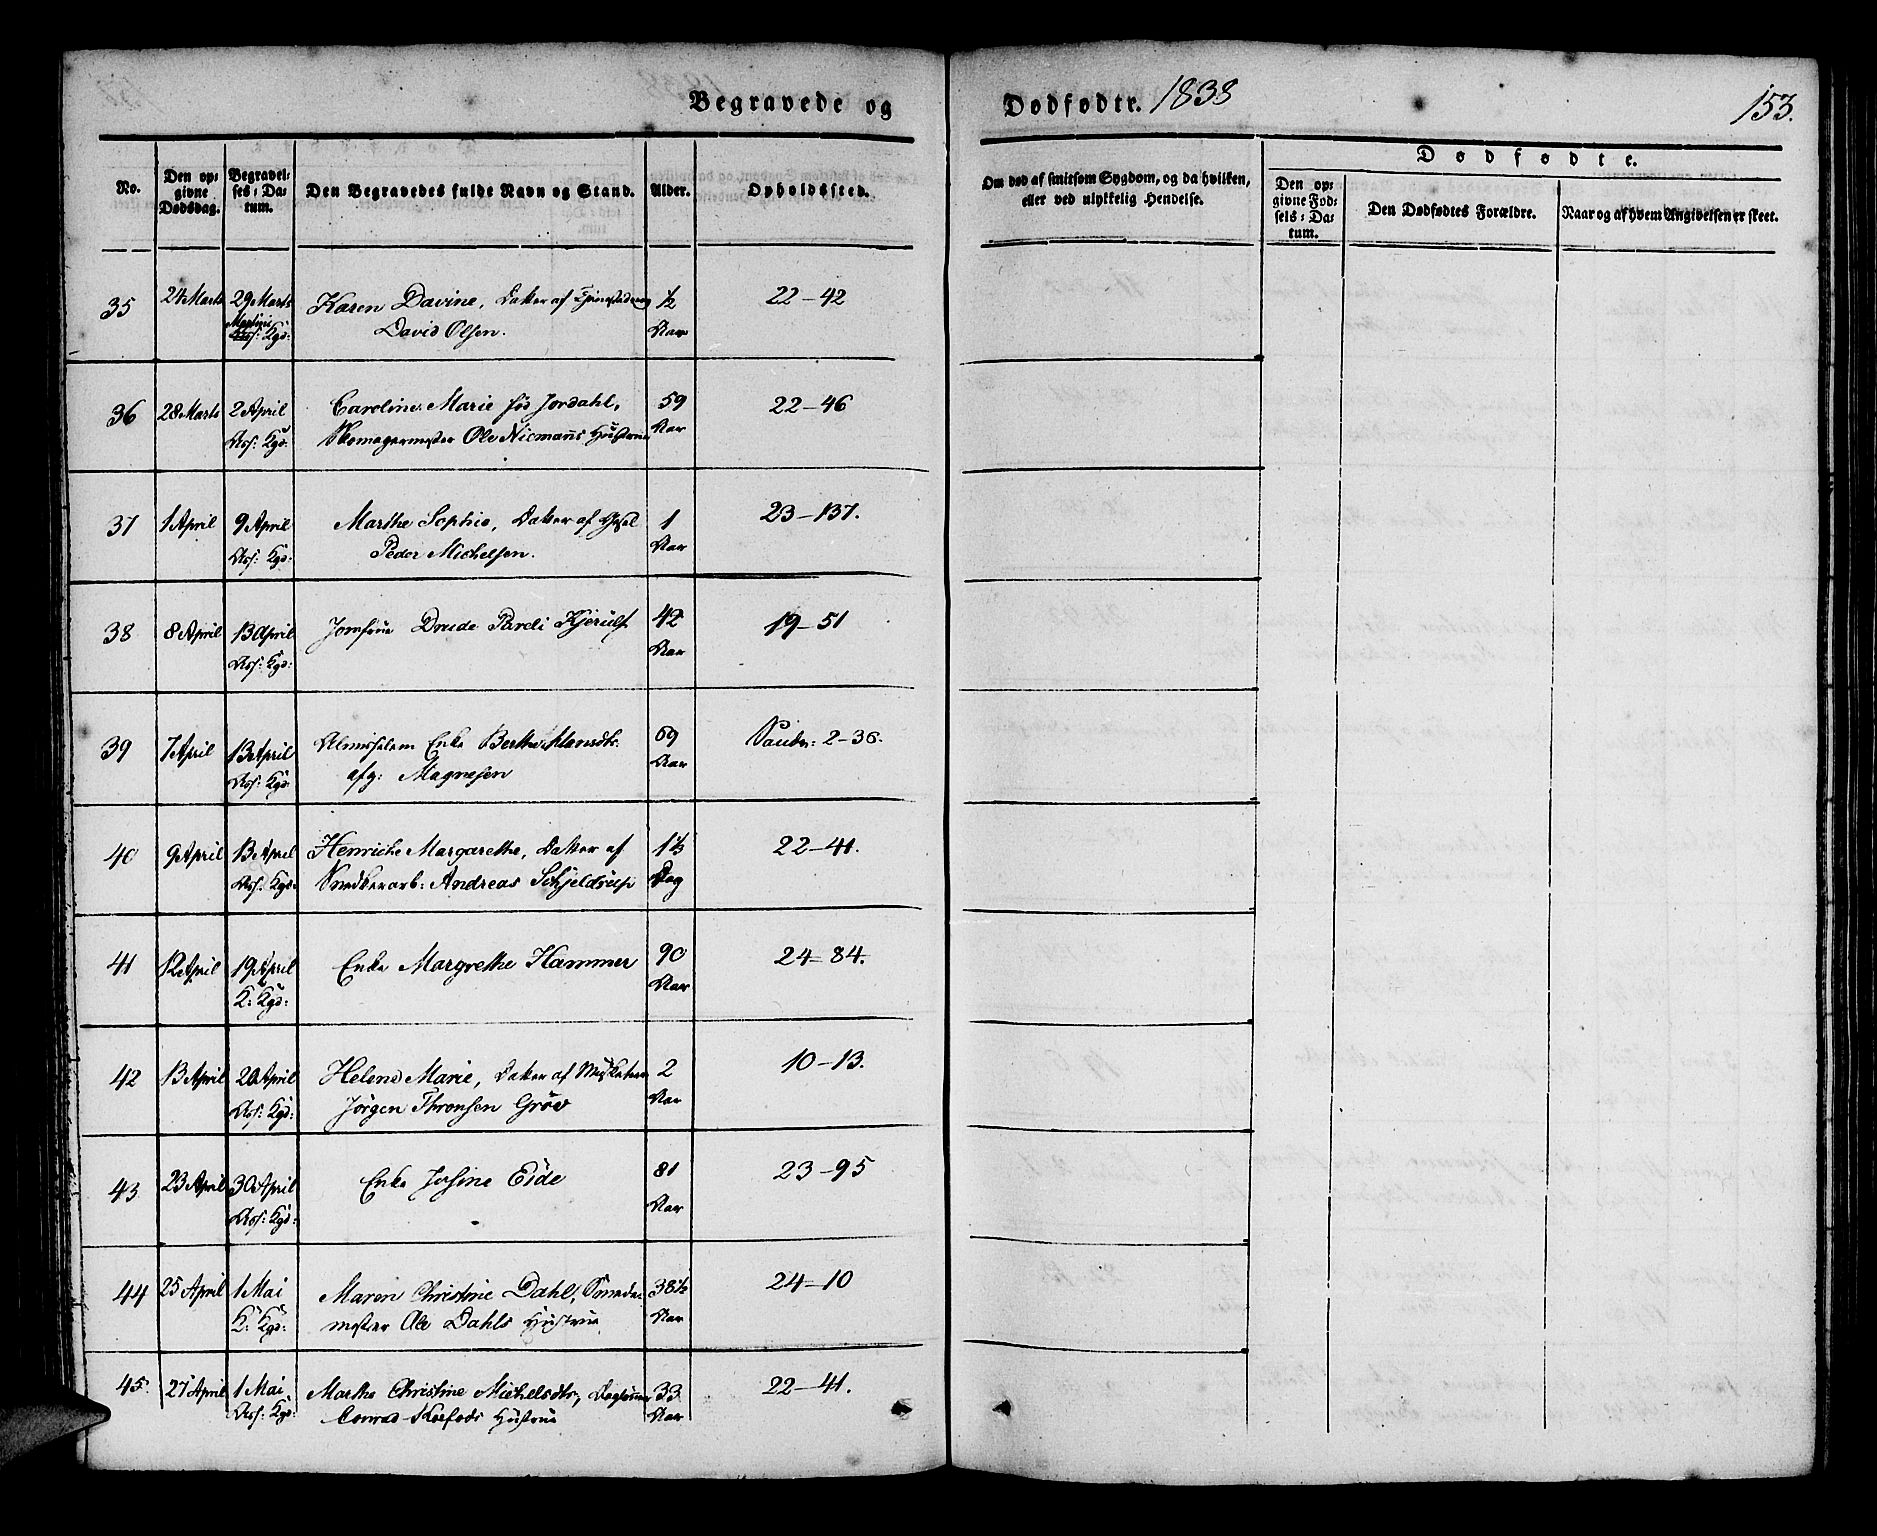 Begravede og Dødfødtr. 1838 153.
No.
Den op-
givne
Dødsdag.
Begravel-
ses-Da-
tum.
Den Begravedes fulde Navn og Stand.
Alder.
Opholdssted.
Om død af smitsom Sygdom, og da hvilken,
eller ved ulykkelig Hendelse.
Dødfødte.
Den op-
givne Fød-
sels-Da-
tum.
Den Dødfødtes Forældre.
Naar og af hvem Angivelsen er skeet.
35 24 Marts 29 Marts Karen Davine, Datter af ½ 22-42
Kgd: David Olsen. Aar
36 28 Marts 2 April Caroline Marie fød Jordahl, 59 22-46
Kgd: Skomagermester Ole Niemanns Hustrue Aar
37 1 April 9 April Marthe Sophie, Datter af 1 23-137.
Kgd: Peder Michelsen. Aar
38 8 April 13 April Jomfrue Drude Pareli Kjerulf 42 19-51
Kgd: Aar
39 7 April 13 April Almisselem Enke Berthe Hansdtr. 69 2-36.
Kgd: afg: Magnesen Aar
40 9 April 13 April Henriche Margarethe, Datter af 1½ 22-41.
Kgd: Snedkerarb: Andreas Schjeldrup Dag
41 12 April 19 April Enke Margrethe Hammer 90 24-84.
K: Kgd: Aar
42 13 April 20 April Helene Marie, Datter af 2 10-13.
Kgd: Jørgen Thronsen Grøv Aar
43 23 April 30 April Enke Josine Eide 81 23-95
Kgd: Aar
44 25 April 1 Mai Maren Christine Dahl, Smede- 38½ 24-10
K: Kgd: mester Ole Dahls Hustrue Aar
45. 27 April 1 Mai Marthe Christine Michelsdtr, 33 22-41.
Kgd: Conrad Hustrue Aar